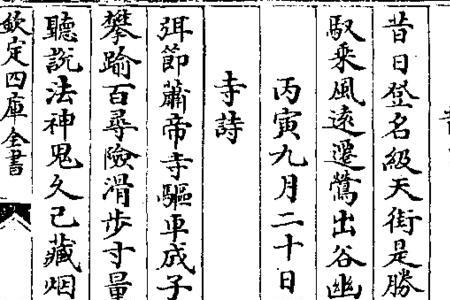 昔日登名級天街是勝
馭乘風遠遷鶯出谷幽
丙寅九月二十日
寺詩
弭節蕭帝寺驅車成子
攀踰百尋險滑步寸量
聽說法神鬼久已藏烟
欽定四庫全書